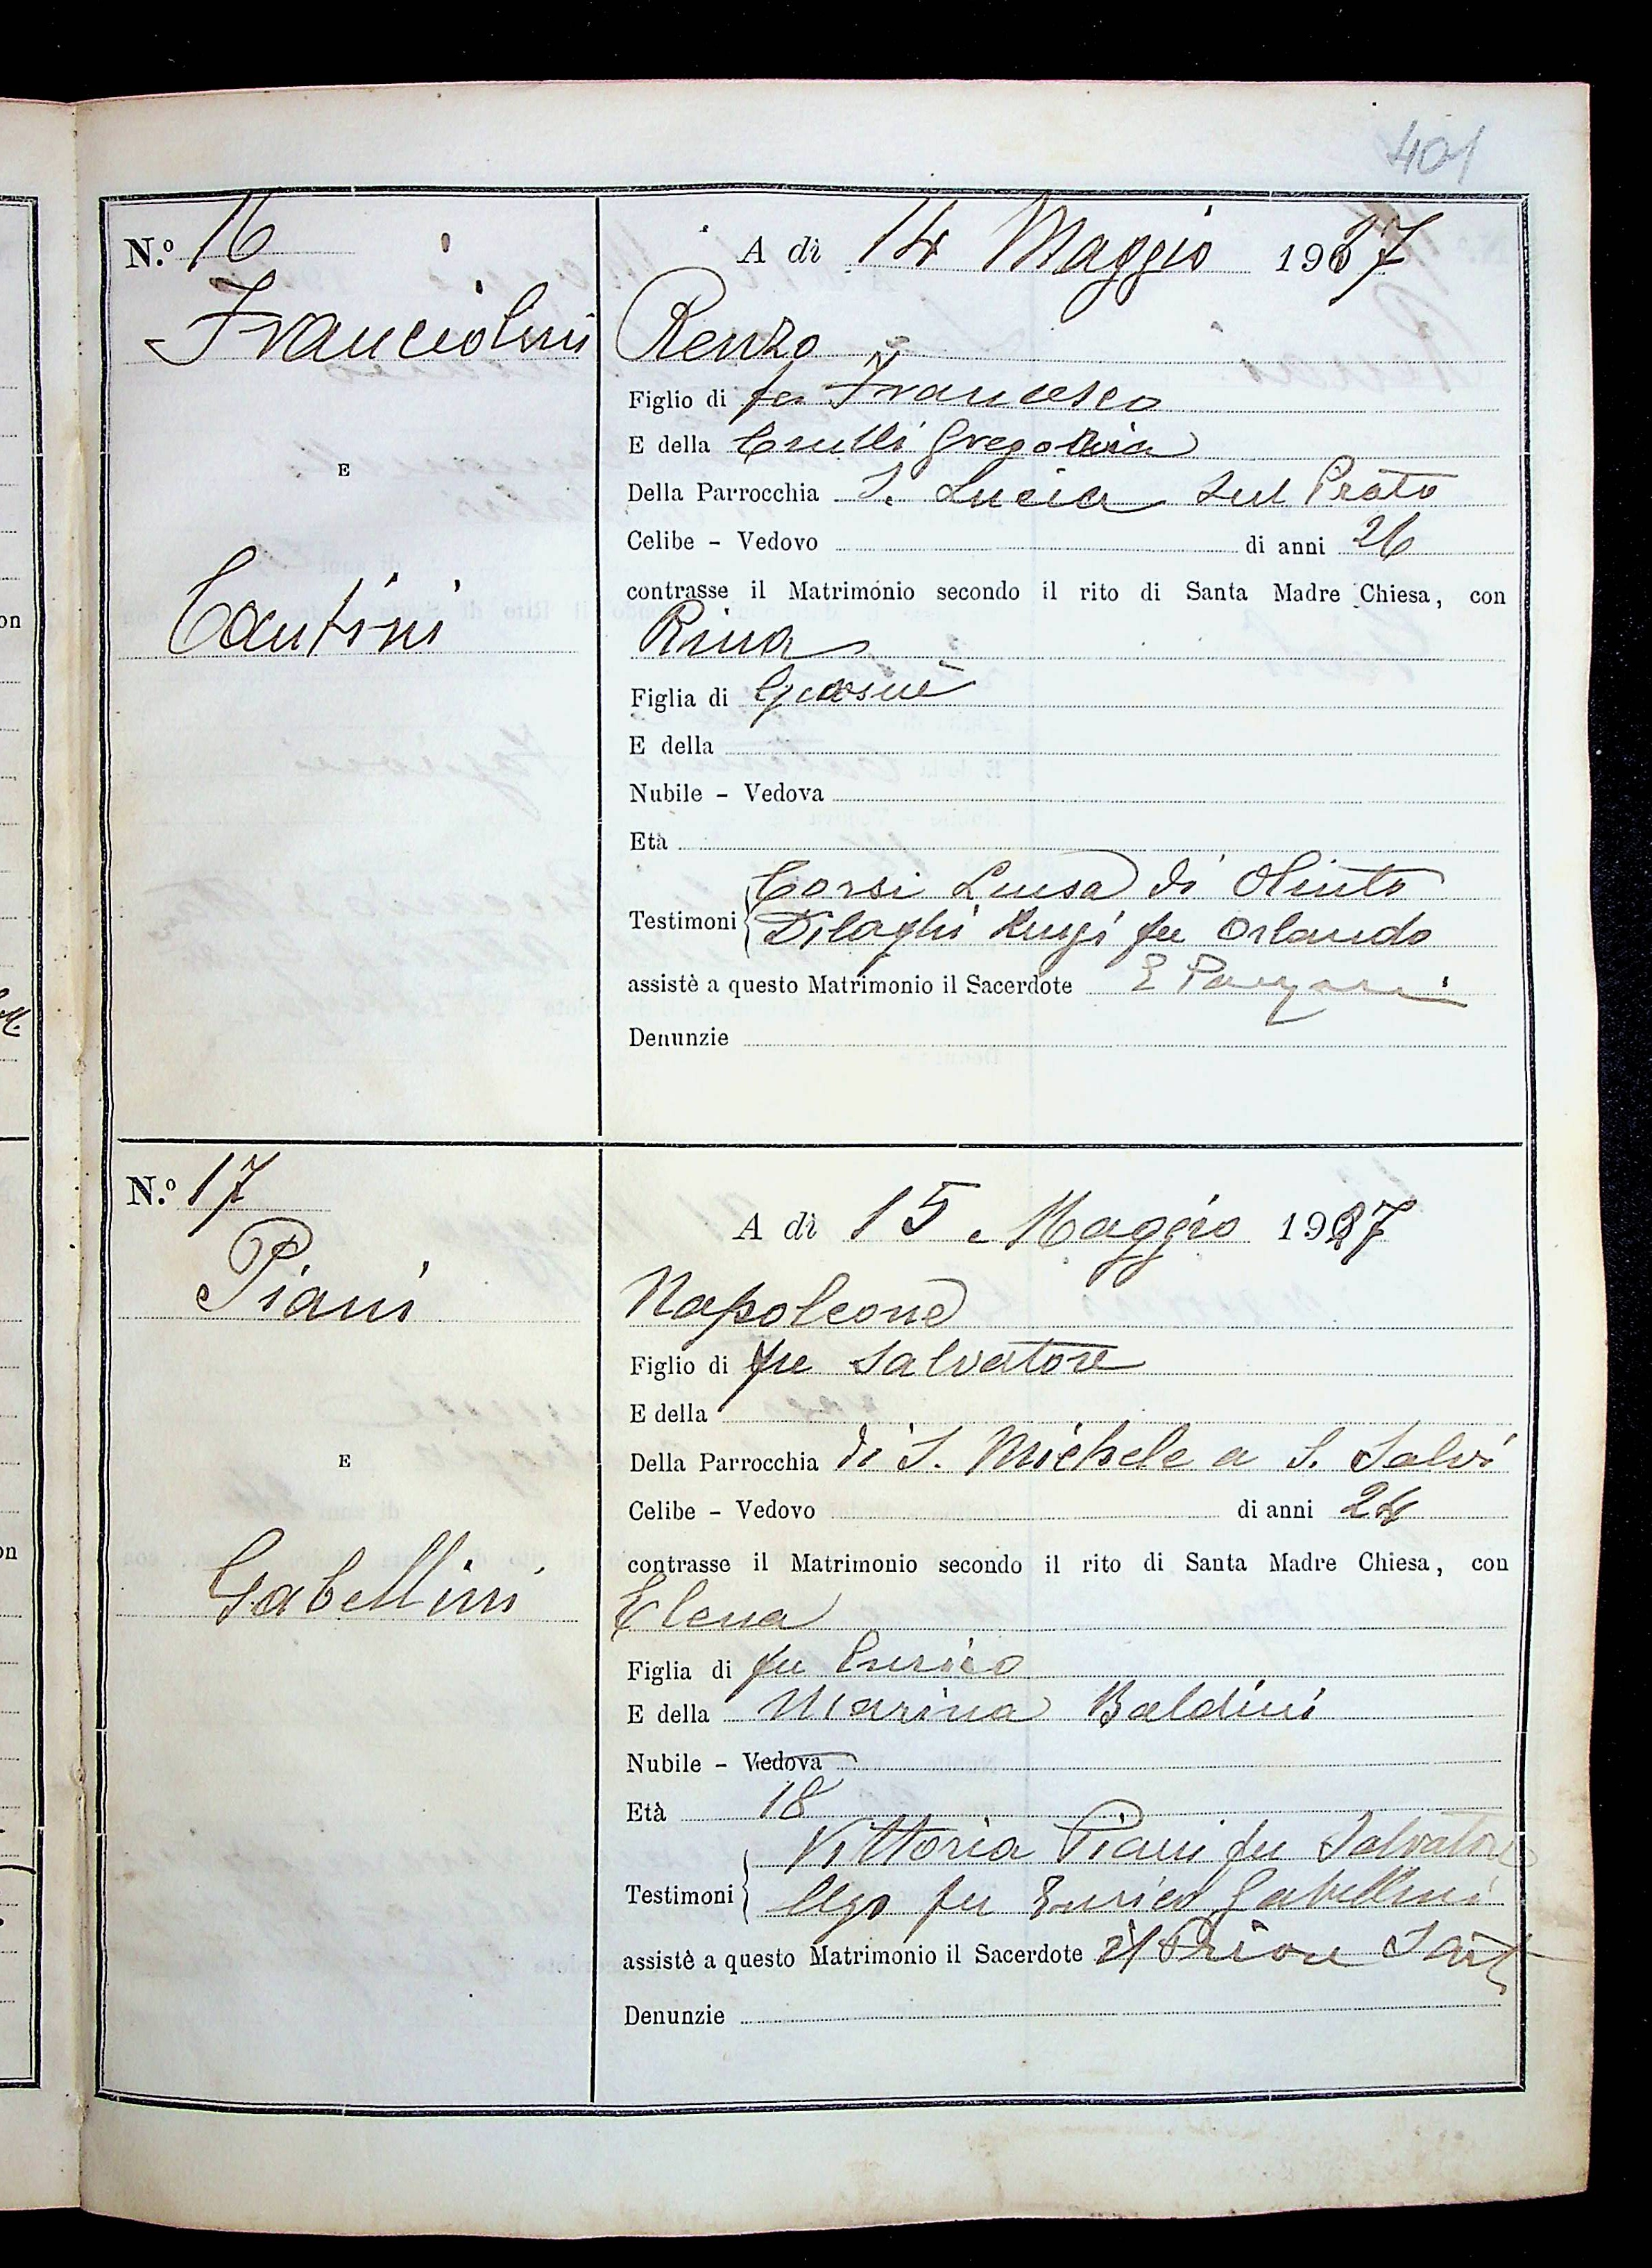 401
N.º 16
A dì 14 Maggio 1917
Franciolini
Renzo
Figlio di fu Francesco
E della Crulli Gregoria
E
Della Parrocchia S. Lucia sul Prato
Celibe - Vedovo di anni 26
contrasse il Matrimonio secondo il rito di Santa Madre Chiesa, con
Cantini
Rina
Figlia di Giosuè
E della
Nubile - Vedova
Età
Corsi Luisa di Olinto
Testimoni Dilaghi Luigi fu Orlando
assistè a questo Matrimonio il Sacerdote E
Denunzie
N.º 17
A dì 15 Maggio 1917
Piani
Napoleone
Figlio di fu Salvatore
E della
Della Parrocchia di S. Michele a S. Salvi
E
Celibe - Vedovo di anni 24
contrasse il Matrimonio secondo il rito di Santa Madre Chiesa, con
Gabellini
Elena
Figlia di fu Enrico
E della Marina Baldini
Nubile - Vedova
Età 18
Vittoria Piani fu Salvatore
Testimoni Ugo fu Enrico Gabellini
assistè a questo Matrimonio il Sacerdote il Priore
Denunzie